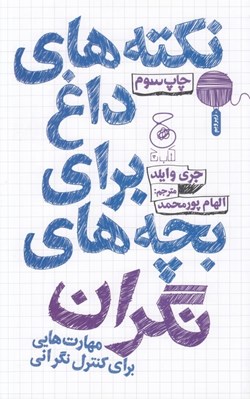 نکته های
چاپ سوم
داغ
برای
کتاب چ
جری وایلد
مترجم:
الهام پورمحمد
بچه های
نگران
مهارت هایی
برای کنترل نگرانی